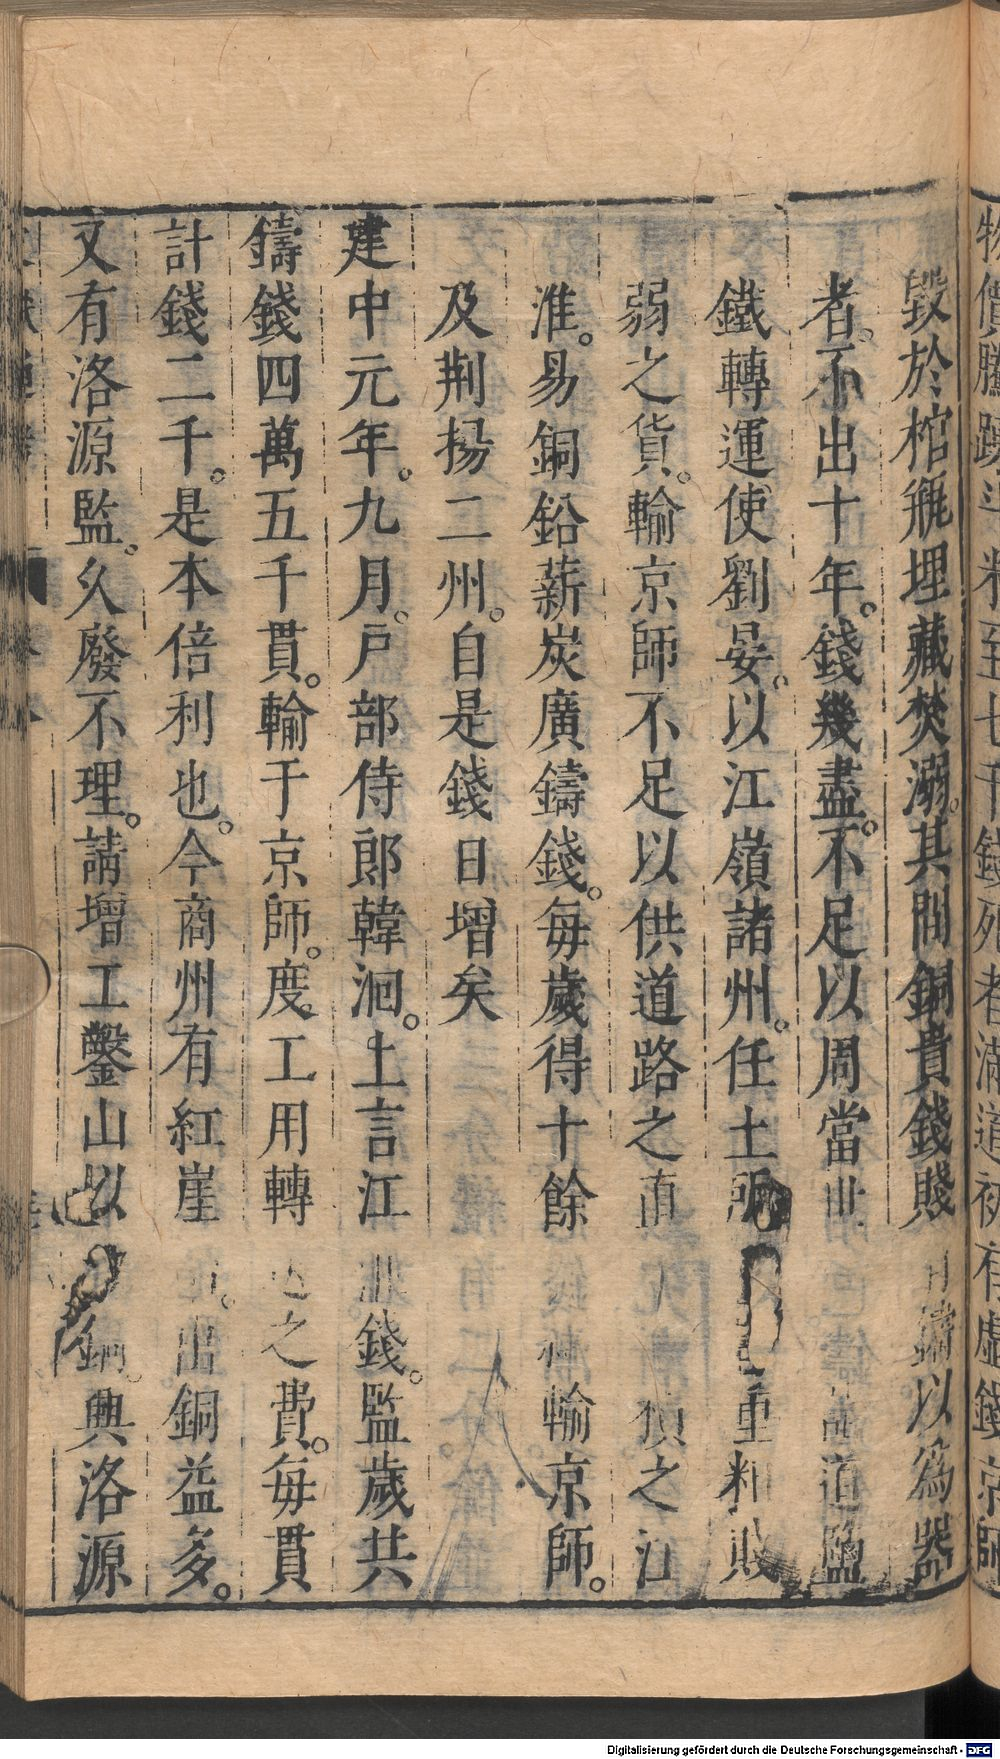 毀於棺瓶埋藏焚溺。其間銅貴錢賤鑄以爲器
者。不出十年。錢幾盡。不足以周當世諸道鹽
鐵轉運使劉晏。以江嶺諸州。任土重粗賤
弱之貨。輸京師不足以供道路之直之江
淮。易銅鉛薪炭廣鑄錢。每歲得十餘輸京師。
及荆揚二州。自是錢日增矣
建中元年。九月。戶部侍郎韓洄。上言江淮錢。監歲共
鑄錢四萬五千貫。輸于京師。度工用轉送之費。每貫
計錢二千。是本倍利也。今商州有紅崖出銅益多。
又有洛源監。久廢不理。請增工鑿山以銅。興洛源
物價騰踴斗米至七千錢死者滿道初有虛錢京師
Digitalisierung gefördert durch die Deutsche Forschungsgemeinschaft - DFG